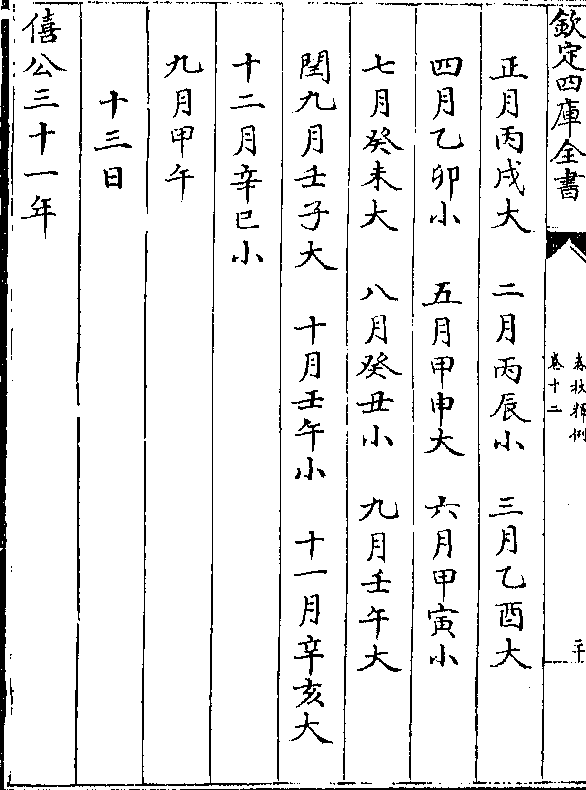 欽定四庫全書
春秋釋例
卷十二
二十
正月丙戌大　二月丙辰小　三月乙酉大
四月乙卯小　五月甲申大　六月甲寅小
七月癸未大　八月癸丑小　九月壬午大
閏九月壬子大　十月壬午小　十一月辛亥大
十二月辛巳小
九月甲午
十三日
僖公三十一年